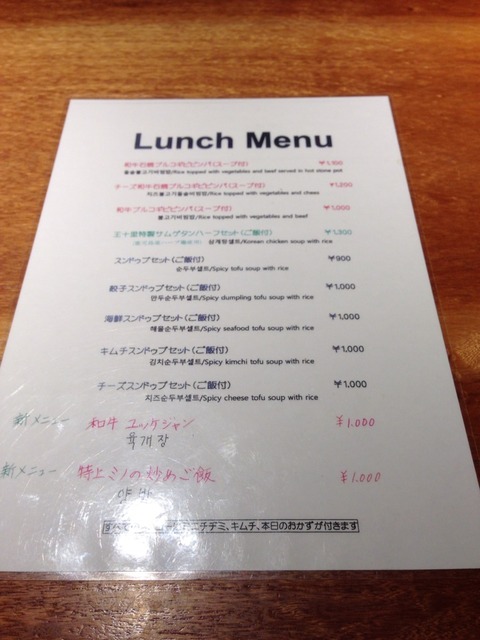 Lunch Menu
和牛石焼プルコギビビンバ(スープ付) ¥1,100
돌솥불고기비빔밥/Rice topped with vegetables and beef served in hot stone pot
チーズ和牛石焼プルコギビビンバ(スープ付) ¥1,200
치즈불고기돌솥비빔밥/Rice topped with vegetables and chees
和牛プルコギビビンバ(スープ付) ¥1,000
불고기비빔밥/Rice topped with vegetables and beef
王十里特製サムゲタンハーフセット(ご飯付) ¥1,300
삼계탕셀트/Korean chicken soup with rice
スンドゥブセット(ご飯付) ¥900
순두부셀트/Spicy tofu soup with rice
餃子スンドゥブセット(ご飯付) ¥1,000
만두순두부셀트/Spicy dumpling tofu soup with rice
海鮮スンドゥブセット(ご飯付) ¥1,000
해물순두부셀트/Spicy seafood tofu soup with rice
キムチスンドゥブセット(ご飯付) ¥1,000
김치순두부셀트/Spicy kimchi tofu soup with rice
チーズスンドゥブセット(ご飯付) ¥1,000
치즈순두부셀트/Spicy cheese tofu soup with rice
新メニュー 和牛 ユッケジャン ¥1.000
육개장
新メニュー 特上ミノの炒めご飯 ¥1.000
양
すべて チデミ、キムチ、本日のおかずが付きます